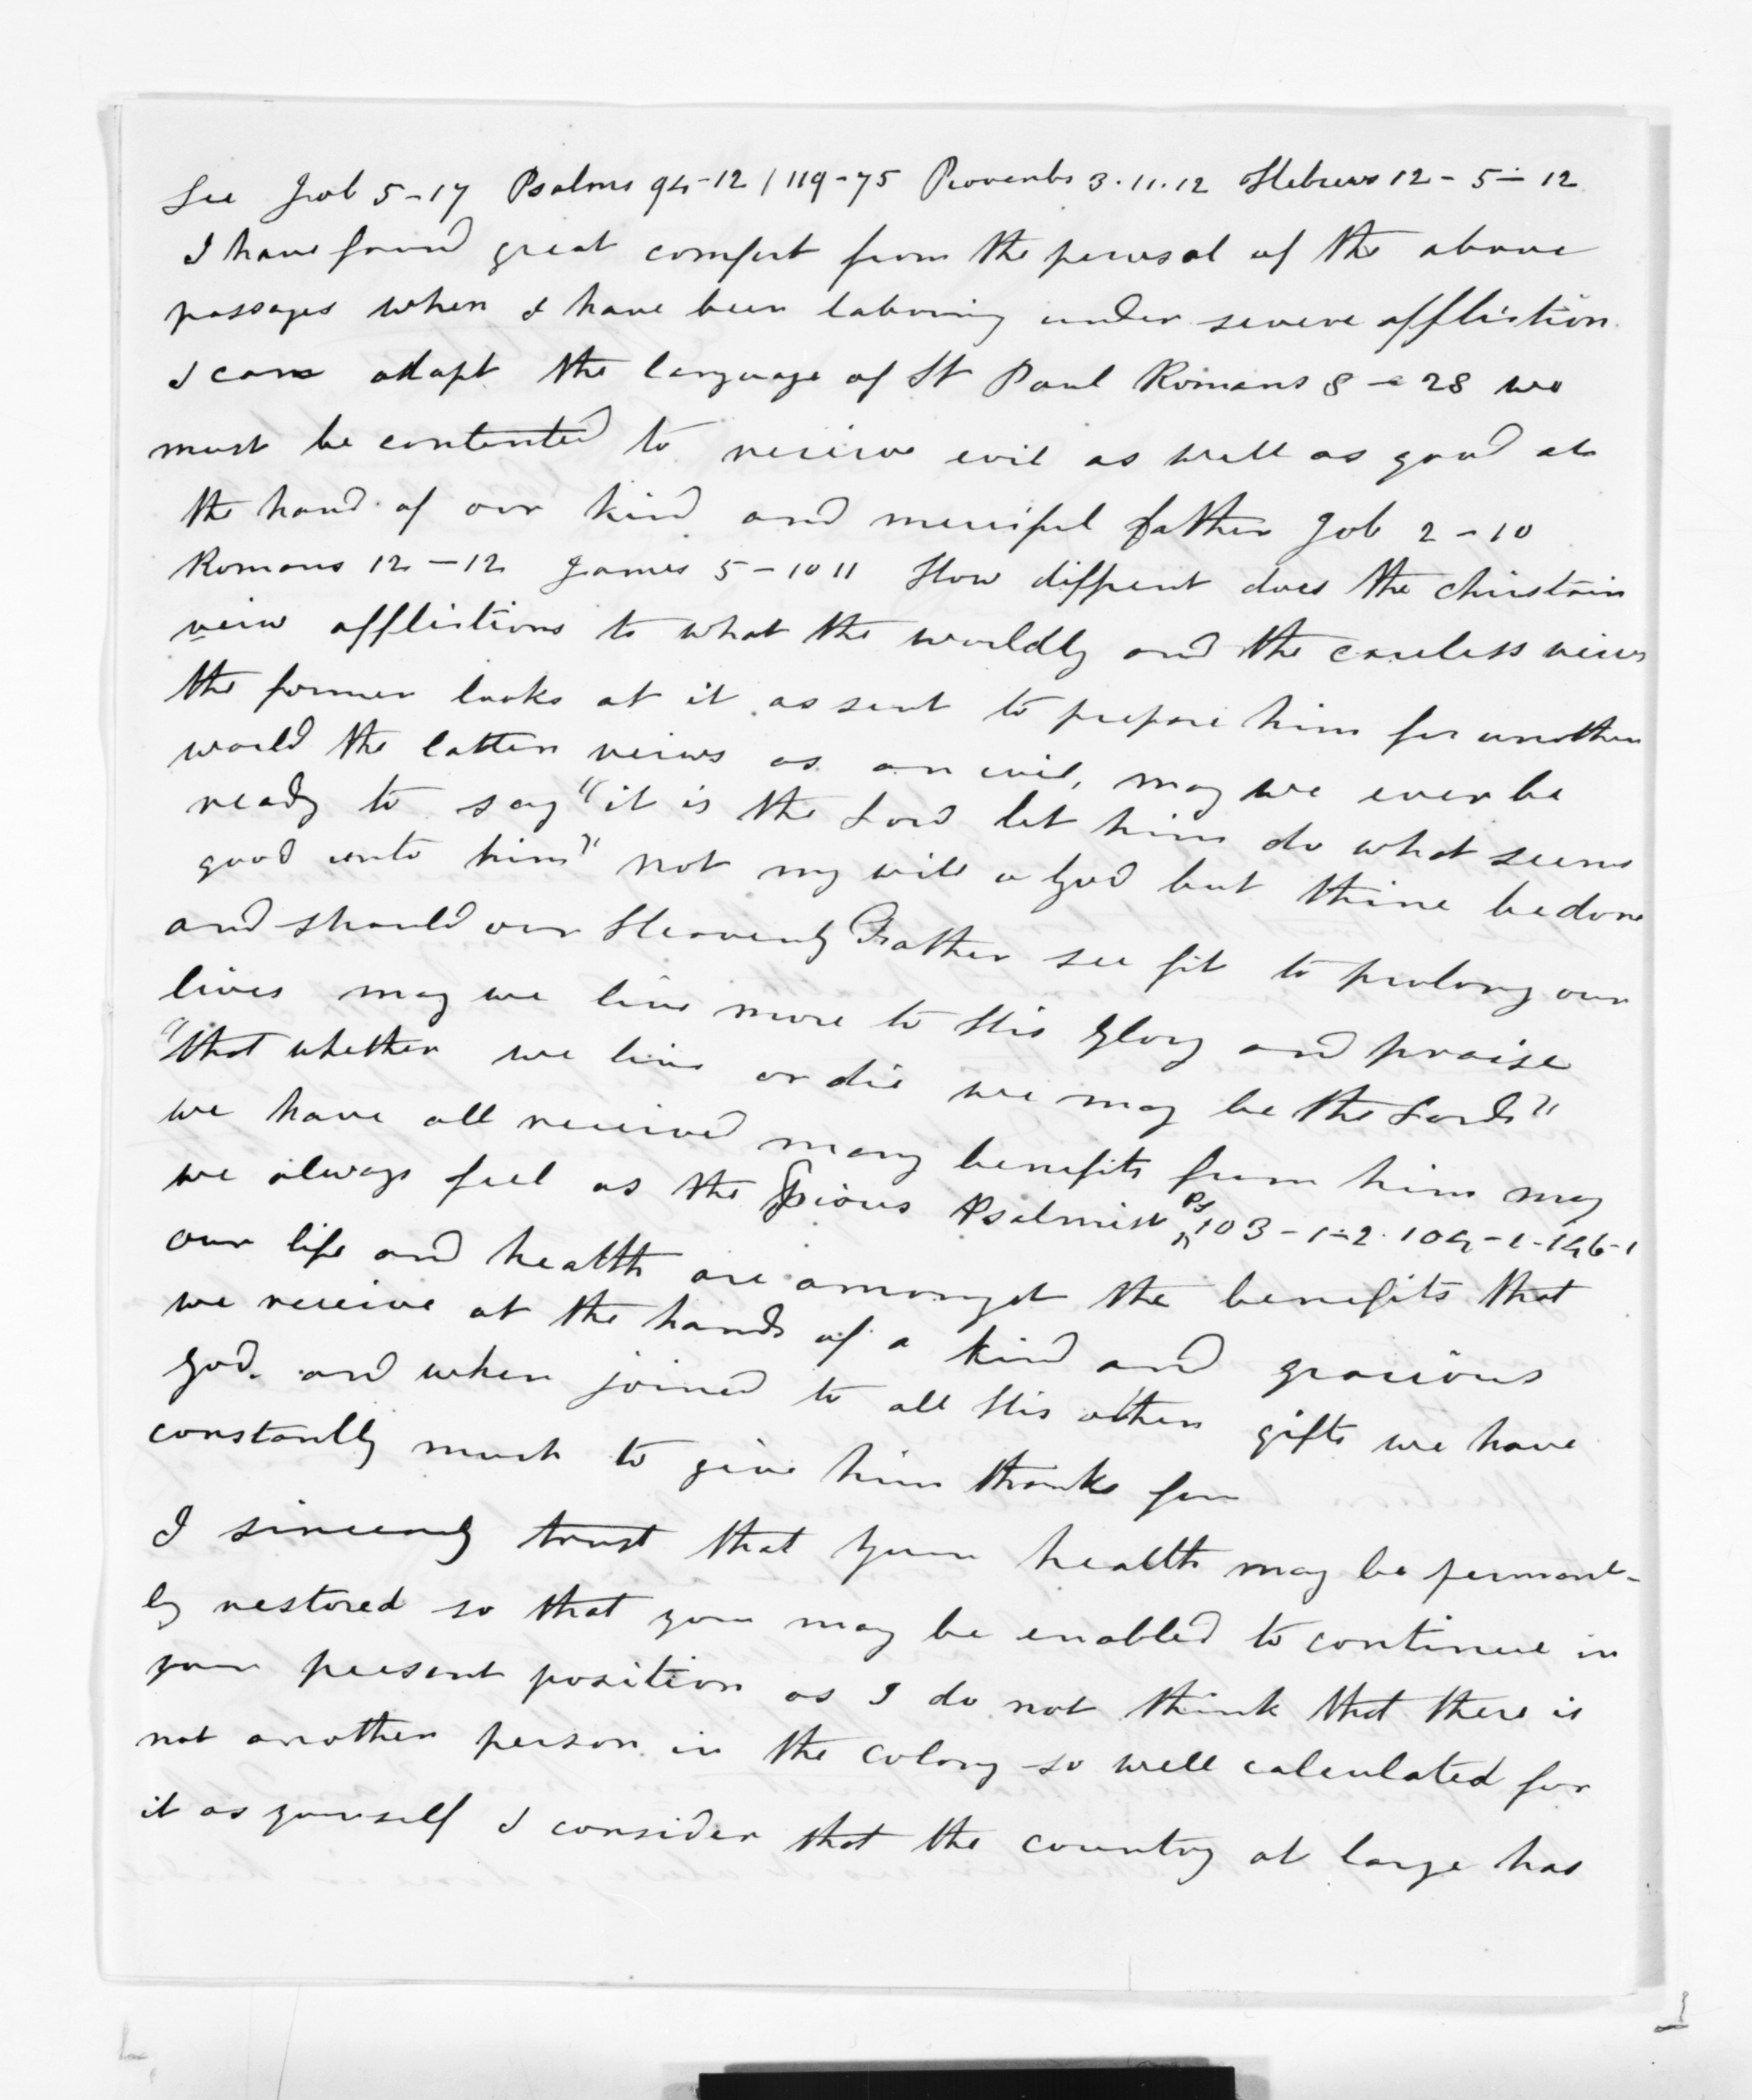 See Job 5-17 Psalms 94-12 / 119-75 Proverbs 3.11.12 Hebrews 12-5-12
I have found great comfort from the perusal of the above
passages when I have been laboring under severe affliction
I can adapt the language of St Paul Romans 8-28 we
must be contented to receive evil as well as good at
the hand of our kind and merciful father Job 2-10
Romans 12-12 James 5-10 11 How diffrent does the christain
veiw afflictions to what the worldly and the careless veiws
the former looks at it as sent to prepare him for another
world the latter veiws as an evil, may we ever be
ready to say "it is the Lord let him do what seems
good unto him" not my will o God but thine be done
and should our Heavenly Father see fit to prolong our
lives may we live more to His glory and praise
"that whether we live or die we may be the Lords"
we have all received many benefits from him may
we always feel as the pious Psalmist Ps 103-1-2. 104-1-146-1
our life and health are amongst the benefits that
we receive at the hands of a kind and gracious
God. and when joined to all His other gifts we have
constantly much to give him thanks for
I sincerely trust that your health may be permant-
ly restored so that you may be enabled to continue in
your present position as I do not think that there is
not another person in the colony so well calculated for
it as yourself I consider that the country at large has